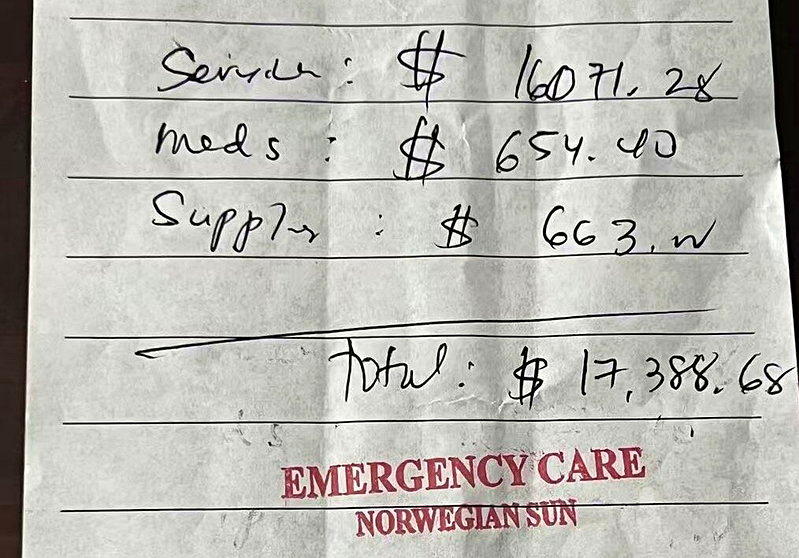 Services: $ 16071.28
Meds: $ 654.40
Supplies: $ 663.00
Total: $ 17,388.68
EMERGENCY CARE
NORWEGIAN SUN